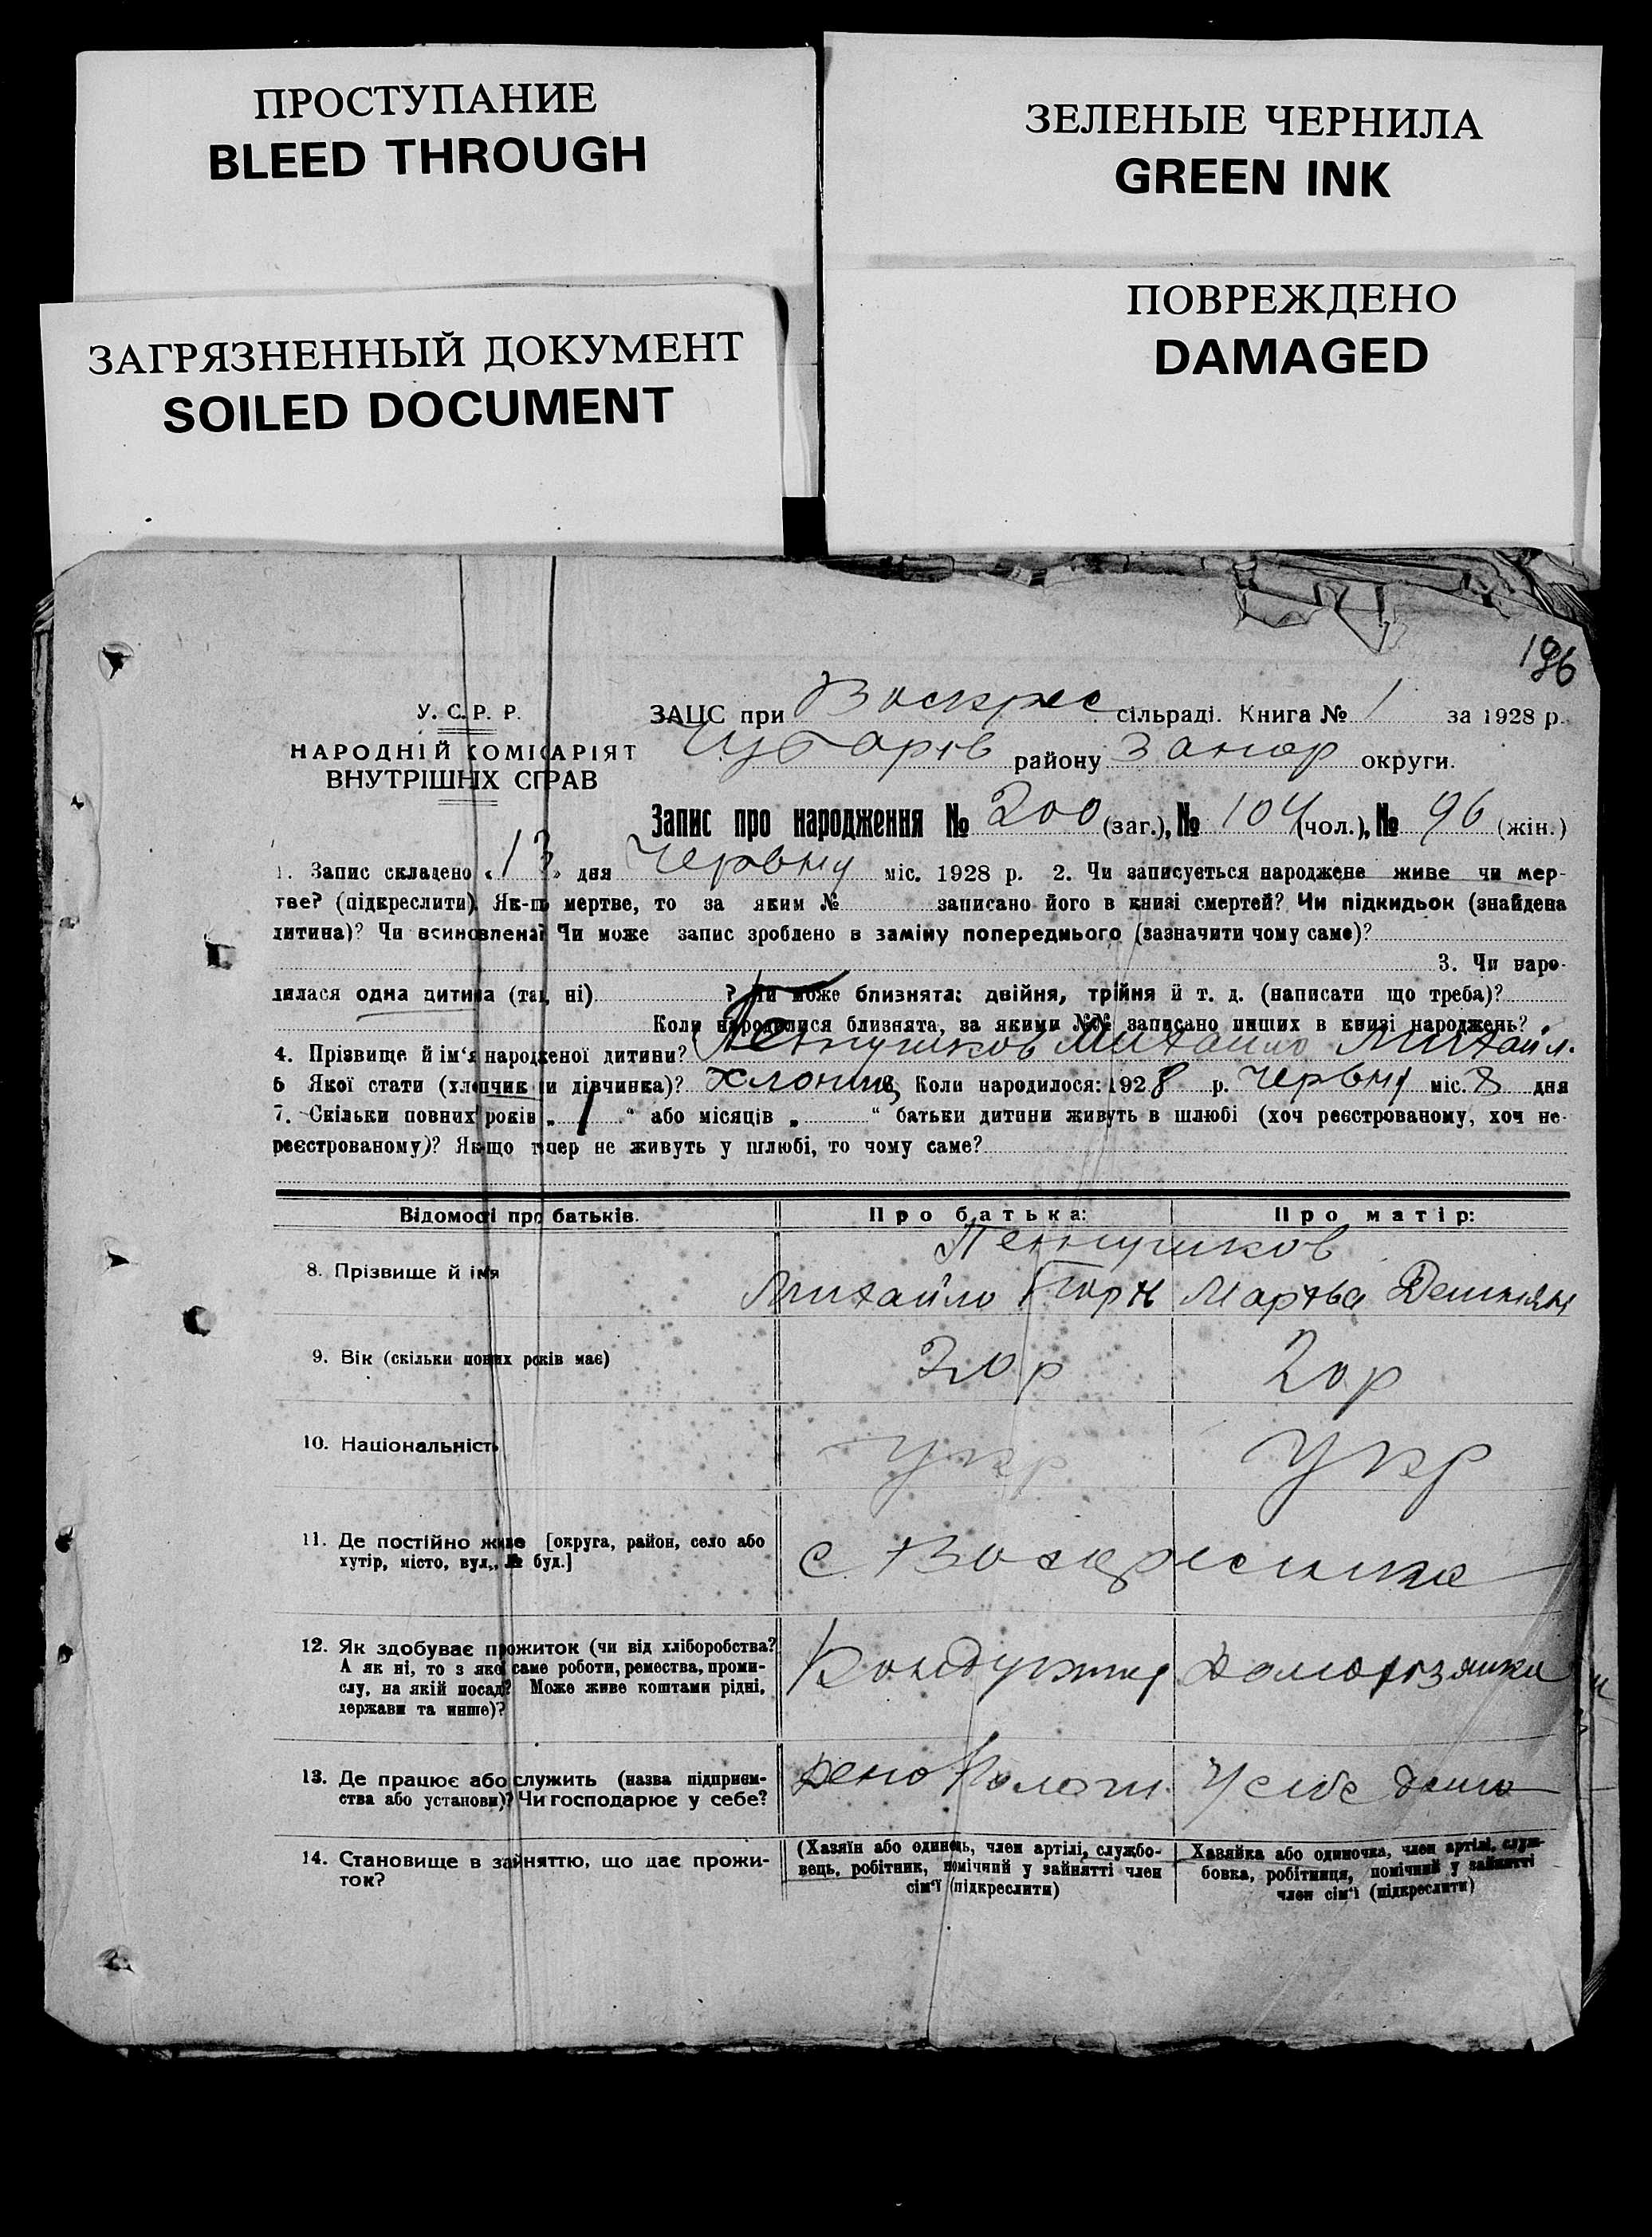 ПРОСТУПАНИЕ
BLEED THROUGH
ЗЕЛЕНЫЕ ЧЕРНИЛА
GREEN INK
ЗАГРЯЗНЕННЫЙ ДОКУМЕНТ
SOILED DOCUMENT
ПОВРЕЖДЕНО
DAMAGED
196
У. С. Р. Р.
НАРОДНІЙ КОМІСАРІЯТ
ВНУТРІШНІХ СПРАВ
ЗАЦС при Воскрес сільраді. Книга № 1 за 1928 р.
Чубарів району Запор округи.
Запис про народження № 200 (заг.), № 104 (чол.), № 96 (жін.)
1. Запис складено « 13 » дня Червня міс. 1928 р. 2. Чи записується народжене живе чи мер-
тве? (підкреслити) Як-що мертве, то за яким № записано його в книзі смертей? Чи підкидьок (знайдена
дитина)? Чи всиновлена? Чи може запис зроблено в заміну попереднього (зазначити чому саме)?
3. Чи наро-
дилася одна дитина (так, ні) ? Чи може близнята: двійня, трійня й т. д. (написати що треба)?
Коли народилися близнята, за якими №№ записано инших в книзі народжень?
4. Прізвище й ім'я народженої дитини? Михайло Михайл.
6 Якої стати (хлопчик чи дівчинка)? хлопець Коли народилося: 1928 р. Червня міс. 8 дня
7. Скільки повних років „ 1 “ або місяців „ “ батьки дитини живуть в шлюбі (хоч реєстрованому, хоч не-
реєстрованому)? Якщо тепер не живуть у шлюбі, то чому саме?
Відомості про батьків. Про батька: Про матір:
8. Прізвище й імя
Михайло Марфа
9. Вік (скільки повних років має) 20 р 20 р
10. Національність Укр Укр
11. Де постійно живе [округа, район, село або
хутір, місто, вул., № буд.] с. Воскресенка
12. Як здобуває прожиток (чи від хліборобства?
А як ні, то з якої саме роботи, ремества, проми-
слу, на якій посаді? Може живе коштами рідні,
держави та инше)?
Кондуктор
13. Де працює або служить (назва підприєм-
ства або установи)? Чи господарює у себе?
Депо У себе дома
14. Становище в зайняттю, що дає прожи-
ток?
(Хазяїн або одинець, член артілі, службо-
вець, робітник, помічний у зайнятті член
сім'ї (підкреслити)
Хазяйка або одиночка, член артілі, служ-
бовка, робітниця, помічний у зайнятті
член сім'ї (підкреслити)